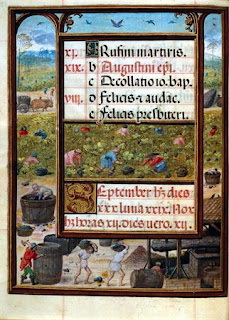 A Rufini martiris.
xj. b Augustini epi.
xix. c Decollatio io. bap.
viii. d Felicis ⁊ audac.
e Felicis presbiteri.
September hz dies
xxx luna xxix. Nox
hz horas xij. dies vero. xij.